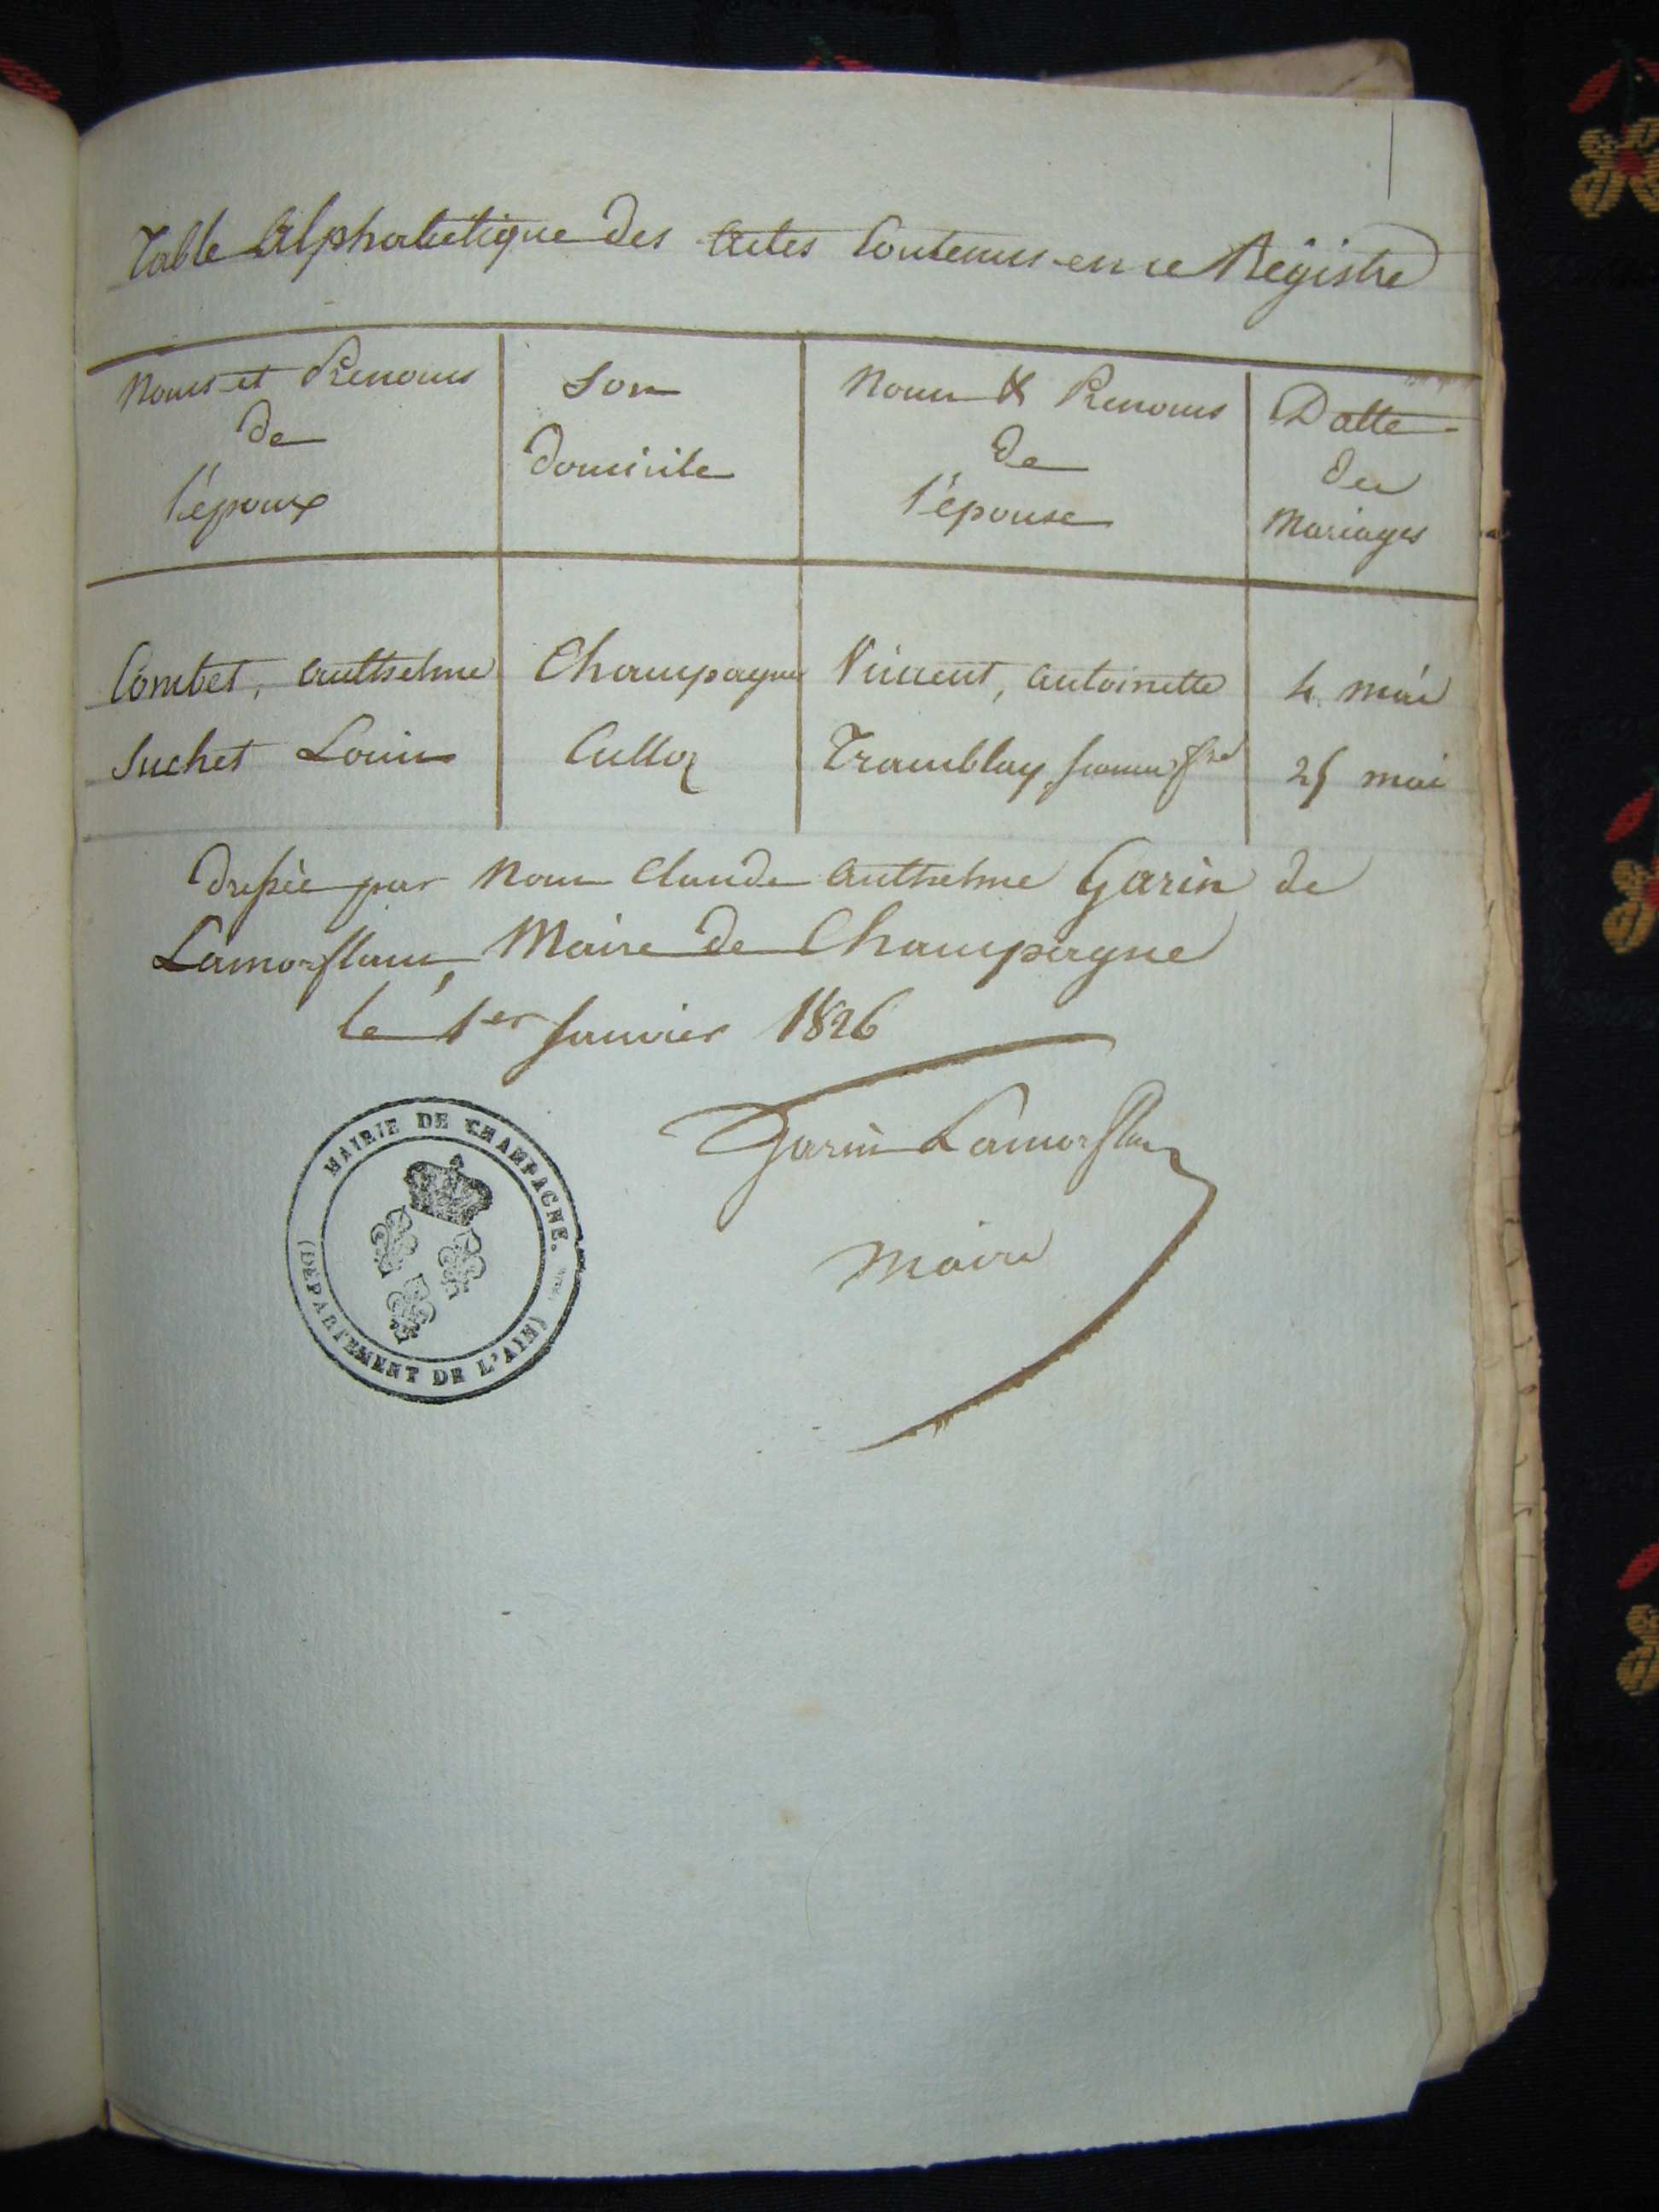 Table Alphabétique des Actes Contenus en ce Régistre
Noms et Prenoms de l'époux
Son domicile
Noms & Prenoms de l'épouse
Datte des Mariages
Combet, Anthelme Champagne Vincent, Antoinette 4 mai
Suchet Louis Culloz Tramblay 25 mai
dressée par Nous Claude Anthelme Garin de
Lamorflanc, Maire de Champagne
le 1er Janvier 1826
Garin Lamorflanc
Maire
MAIRIE DE CHAMPAGNE.
(DÉPARTEMENT DE L'AIN)